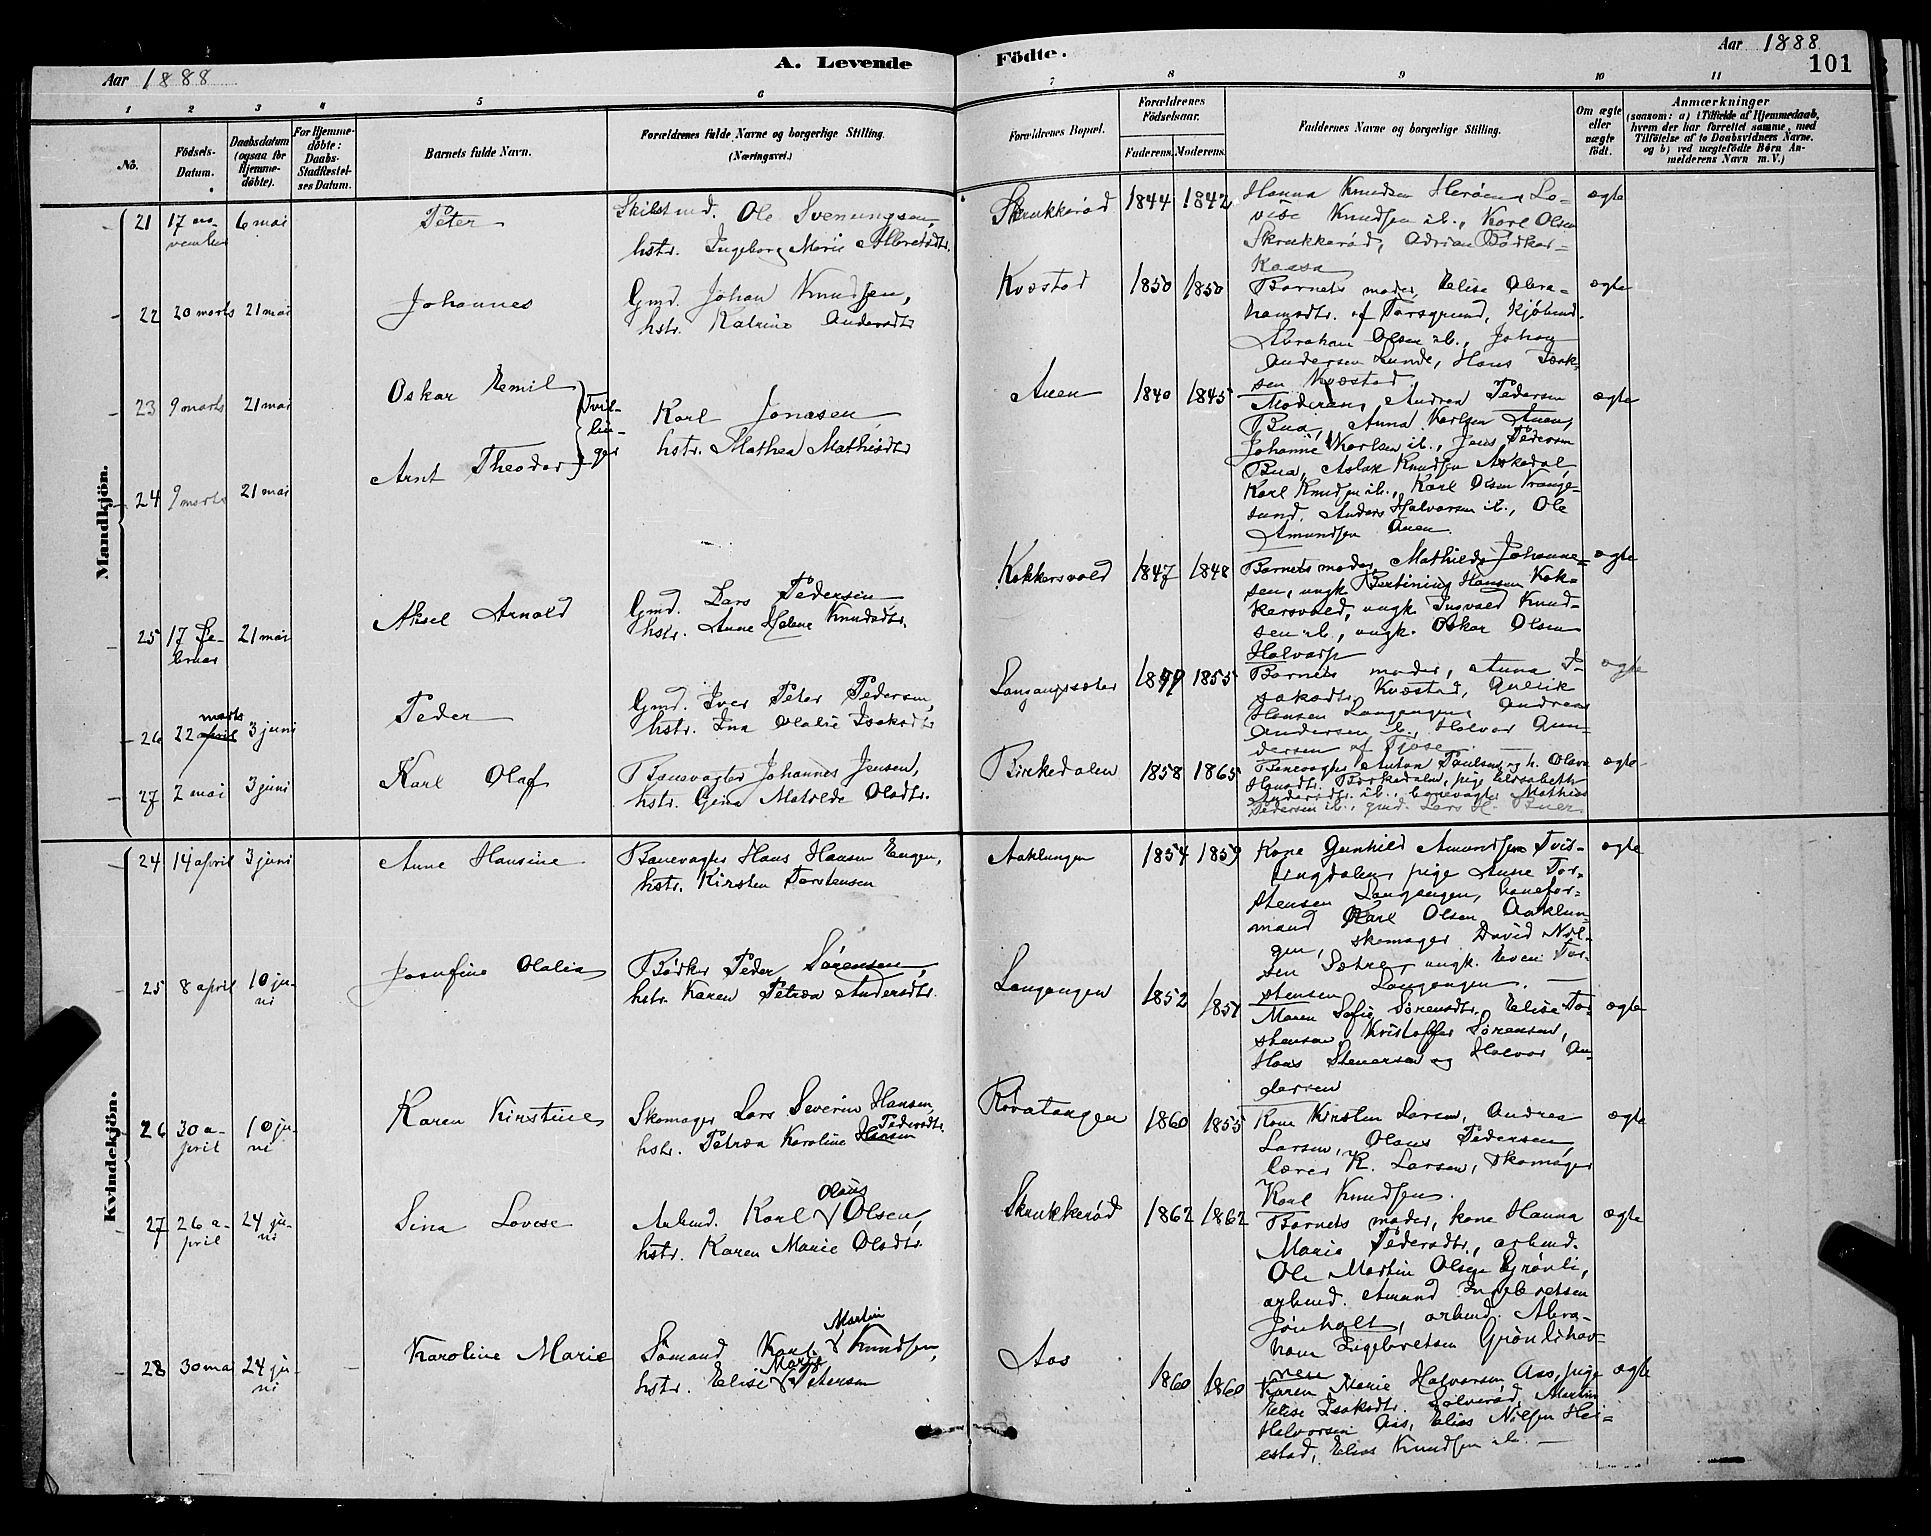 Aar 1888 A. Levende
Födte. Aar 1888
101
1 2 3 4 5 6
7 8 9 10 11
No.
Födsels-
Datum.
Daabsdatum
(ogsaa for
Hjemme-
döbte).
For Hjemme-
döbte:
Daabs-
Stadfæstel-
ses Datum.
Barnets fulde Navn.
Forældrenes fulde Navne og borgerlige Stilling.
(Næringsvei.)
Forældrenes Bopæl.
Forældrenes
Födselsaar.
Faderens. Moderens.
Faddernes Navne og borgerlige Stilling.
Om ægte
eller
uægte
födt.
Anmærkninger
(saasom: a) i Tilfælde af Hjemmedaab,
hvem der har forrettet samme, med
Tilföielse af to Daabsvidners Navne.
og b) ved uægtefödte Børn An-
melderens Navn m. V.)
Mandkjön.
21 17 no-
vember
6 mai
Peter
Ole Svenungsen,
hstr. Ingeborg Marie
Skrukkerød 1844 1842
Hanna Knudsen Herøen, Lo-
vise Knudsen ib., Karl Olsen
Skrukkerød, Adrian Bödker-
Kaasa
ægte
22 20 marts 21 mai
Johannes
Gmd. Johan Knudsen,
hstr. Katrine Andersdtr
Kvæstad 1850 1850
Barnets moder, Elise Abra-
hamsdtr. af Porsgrund, kjøbmd.
Abraham Olsen ib., Johan
Andersen Lunde, Hans Isak-
sen Kvæstad
ægte
23 9 marts 21 mai
Oskar Emil
Tvil-
lin-
ger
24 9 marts 21 mai
Arnt Theodor
Karl Jonasen,
hstr. Mathea Mathisdtr
Auen 1840 1845
Moderen, Andrea Pedersen
Bua, Anna Karlsen Auen,
Johanne Karlsen ib., Jens Pedersen
Bua, Aslak Knudsen Askedal,
Karl Knudsen ib., Karl Olsen Vrange-
sund, Anders Halvorsen ib., Ole
Amundsen Auen
ægte
25 17 fe-
bruar
21 mai
Aksel Arnold
Gmd. Lars Pedersen
hstr. Anne Helene Knudsdtr.
Kokkersvold 1847 1848
Barnets moder, Mathilde Johanne-
sen, ungk. Hansen Kok-
kersvold, ungk. Ingvald Knud-
sen ib., ungk. Oskar Olsen
Halvarp
ægte
26 22 marts 3 juni
Peder
Gmd. Iver Peter Pedersen,
hstr. Ina Olalie Isaksdtr
Langangssæter 1855
Barnets moder, Anna I-
saksdtr. Kvæstad,
Hansen Langangen, Andreas
Andersen ib., Halvor An-
dersen af Tjøse
ægte
27 2 mai 3 juni
Karl Olaf
Banevogter Johannes Jensen,
hstr. Gina Matilde Olsdtr.
Birkedalen 1858 1865
Banevogter Anton Paulsen og h. Olava
Hansdtr. Birkedalen, pige Elisabeth
Andersdtr. ib., banevogt. Mathias
Pedersen ib., gmd. Lars H. Buer
ægte
Kvindekjön.
24 14 april 3 juni
Anne Hansine
Banevogter Hans Hansen Engen,
hstr. Kirsten Torstensen
Aaklungen 1854 1859
Kone Gunhild Amundsen Tvis-
tingdalen, pige Anne Tor-
stensen Langangen, banefor-
mand Karl Olsen Aaklun-
gen, skomager David Nil-
sen Sætre, ungk. Even Tor-
stensen Langangen.
ægte
25 8 april 10 ju-
ni
Josefine Olalia
Bødker Peder Sørensen,
hstr. Karen Petrea Andersdtr.
Langangen 1852 1851
Maren Sofie Sørensdtr. Elise Tor-
stensen, Kristoffer Sørensen,
Hans Stenersen og Halvor An-
dersen
ægte
26 30 a-
pril
10 ju-
ni
Karen Kirstine
Skomager Lars Severin Hansen
hstr. Petrea Karoline Pedersdtr.
Røratangen 1860 1855
Kone Kirsten Larsen, Andrea
Larsen, Olaus Pedersen,
lærer K. Larsen, skomager
Karl Knudsen.
ægte
27 26 a-
pril
24 ju-
ni
Sina Lovise
Arbmd. Karl Olaus Olsen,
hstr. Karen Marie Olsdtr.
Skrukkerød 1862 1862
Barnets moder, kone Hanna
Marie Pedersdtr., arbmd.
Ole Martin Olsen Grønli,
arbmd. Amund Ingebretsen
Jønholt, arbmd. Abra-
ham Ingebretsen Grønlshav-
nen
ægte
28 30 mai 24 ju-
ni
Karoline Marie
Sømand Karl Martin Knudsen,
hstr. Elise Marie Petersen
Aas 1860 1860
Karen Marie Halvorsen Aas, pige
Elise Isaksdtr. Solverød, Martin
Halvorsen Aas, Elias Nilsen Hei-
estad, Elias Knudsen ib.
ægte